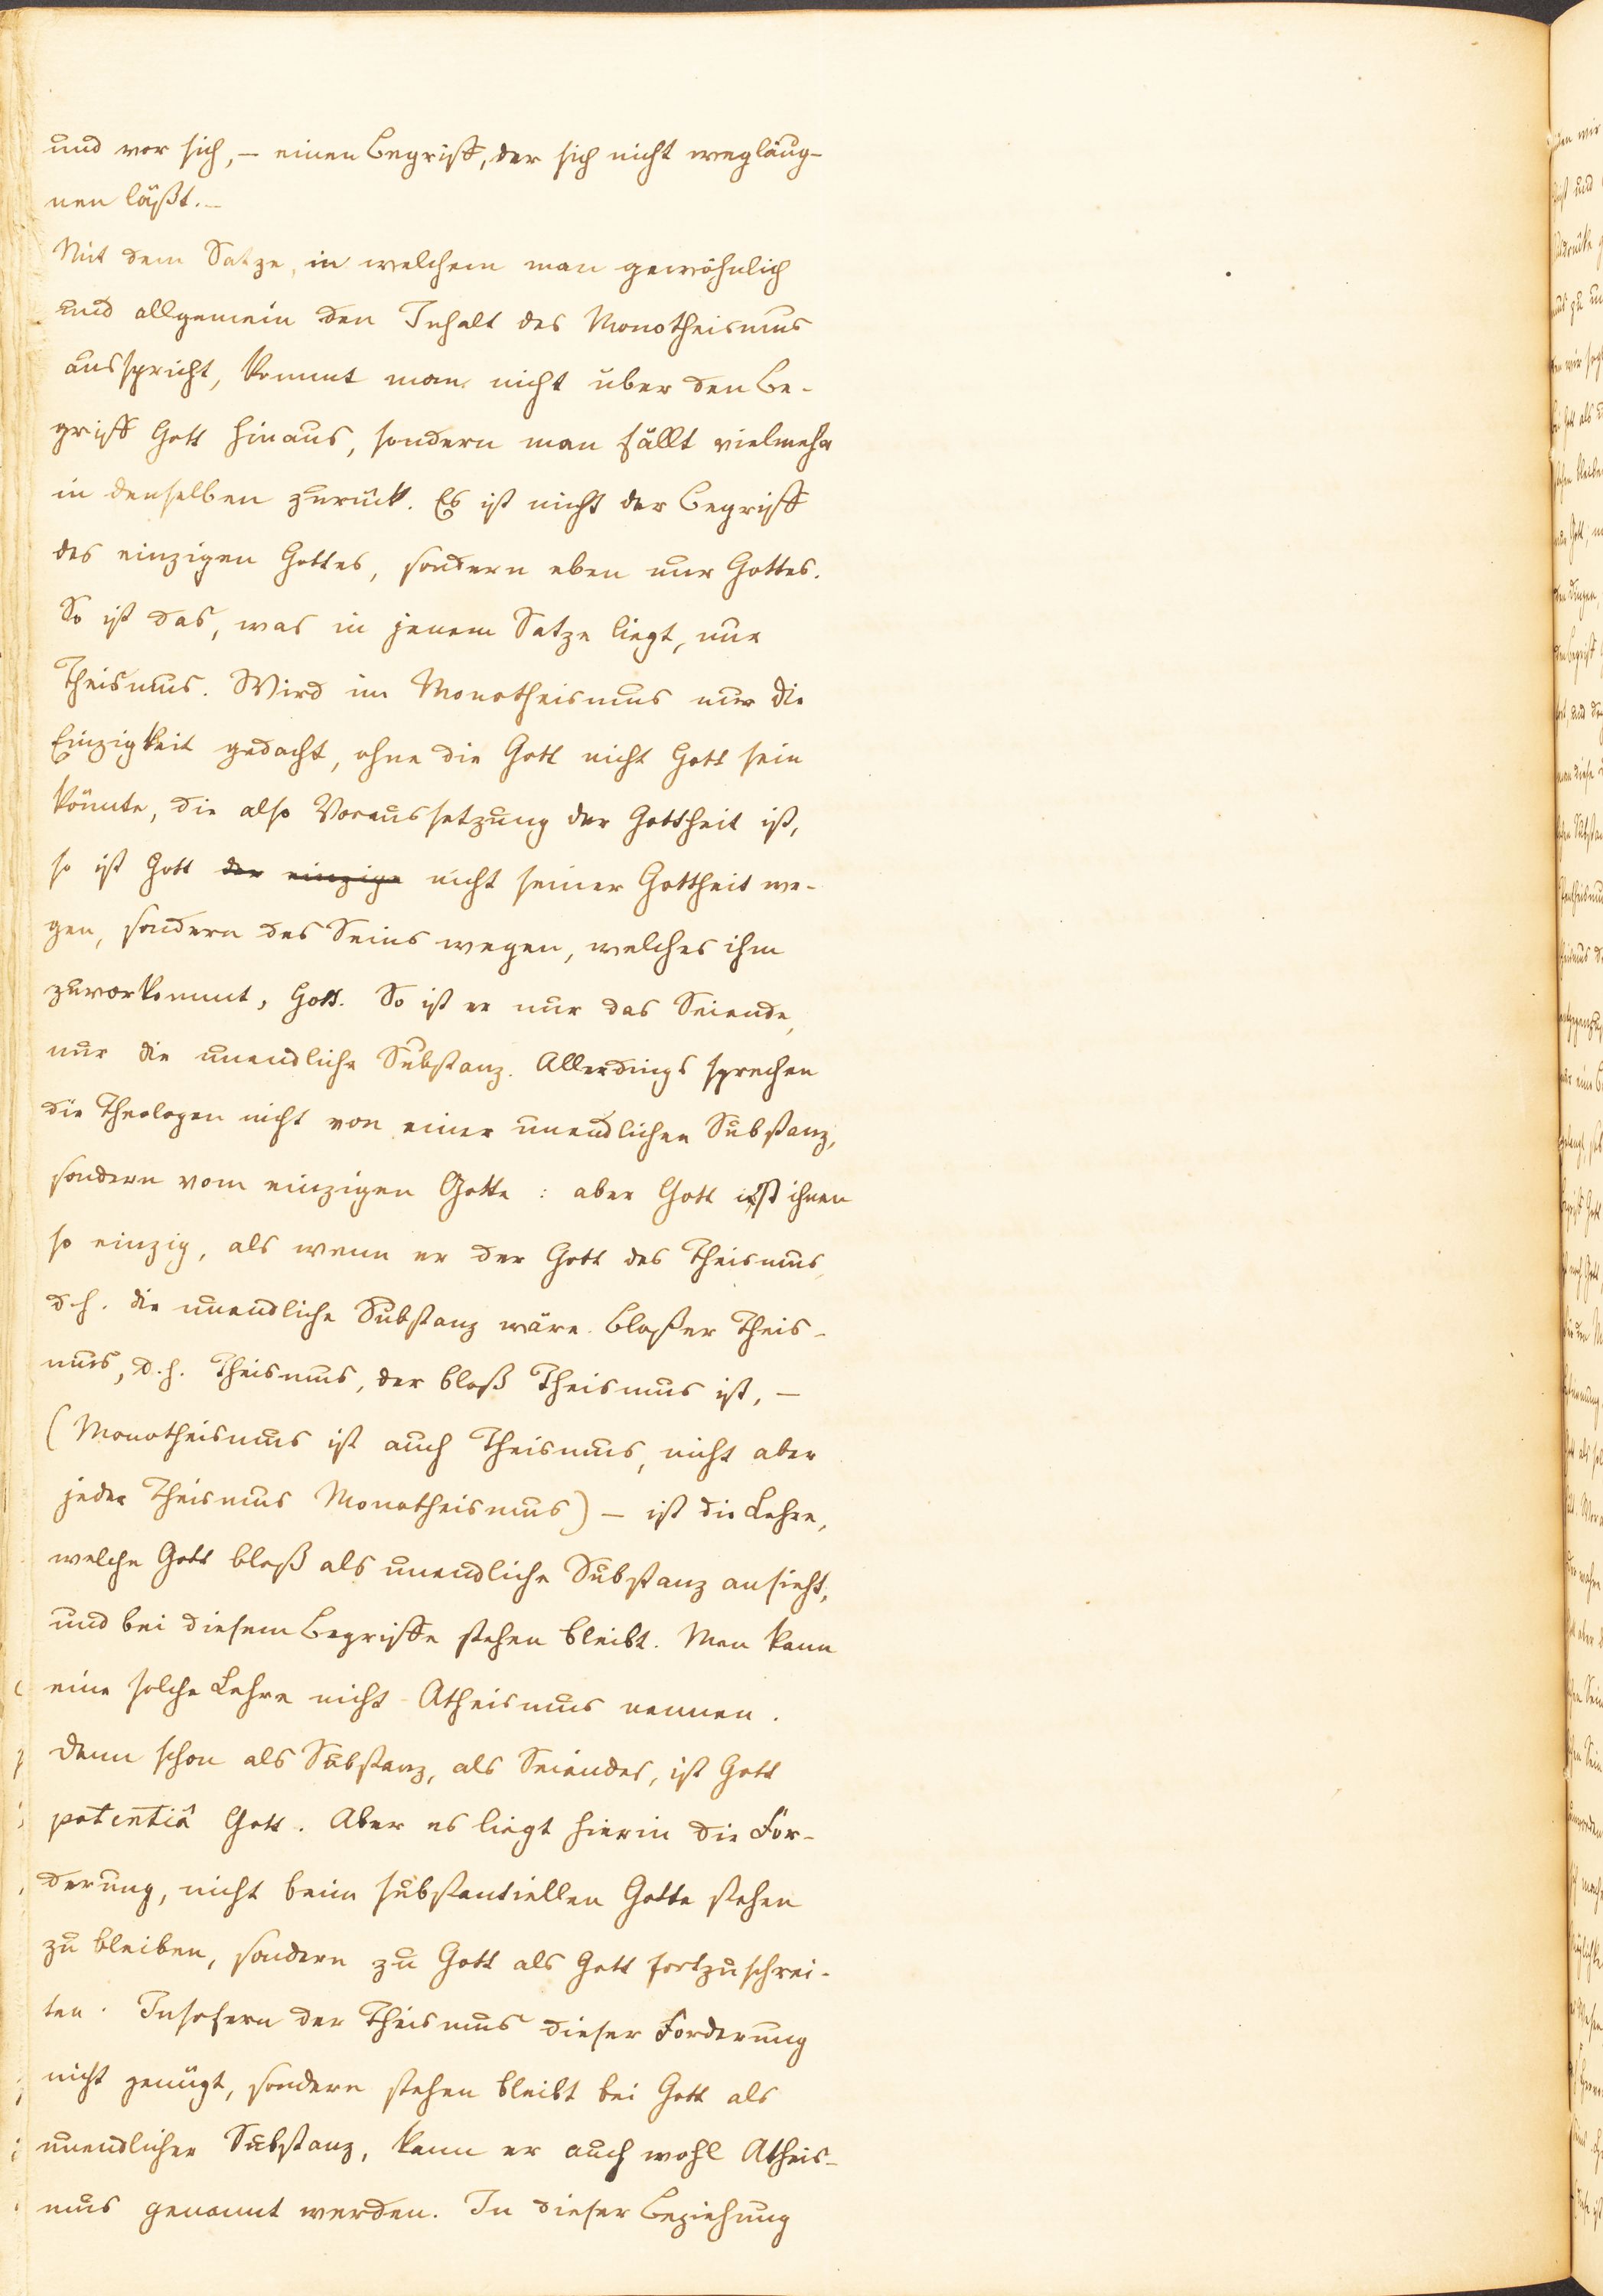 und vor sich, – einen Begriff, der sich nicht wegläug-
nen läßt. –
Mit dem Satze, in welchem man gewöhnlich
und allgemein den Inhalt des Monotheismus
ausspricht, kommt man nicht über den Be-
griff Gott hinaus, sondern man fällt vielmehr
in denselben zurück. Es ist nicht der Begriff
des einzigen Gottes, sondern eben nur Gottes.
So ist das, was in jenem Satze liegt, nur
Theismus. Wird im Monotheismus nur die
Einzigkeit gedacht, ohne die Gott nicht Gott sein
könnte, die also Voraussetzung der Gottheit ist,
so ist Gott der einzige nicht seiner Gottheit we-
gen, sondern des Seins wegen, welches ihm
zuvorkommt, Gott. So ist er nur das Seiende,
nur die unendliche Substanz. Allerdings sprechen
die Theologen nicht von einer unendlichen Substanz,
sondern vom einzigen Gotte: aber Gott ist ihnen
so einzig, als wenn er der Gott des Theismus,
d.h. die unendliche Substanz wäre. Bloßer Theis-
mus, d.h. Theismus, der bloß Theismus ist, –
(Monotheismus ist auch Theismus, nicht aber
jeder Theismus Monotheismus) – ist die Lehre,
welche Gott bloß als unendliche Substanz ansieht,
und bei diesem Begriffe stehen bleibt. Man kann
eine solche Lehre nicht Atheismus nennen.
Denn schon als Substanz, als Seiendes, ist Gott
potentiâ Gott. Aber es liegt hierin die For-
derung, nicht beim substantiellen Gotte stehen
zu bleiben, sondern zu Gott als Gott fortzuschrei-
ten. Insofern der Theismus dieser Forderung
nicht genügt, sondern stehen bleibt bei Gott als
unendlicher Substanz, kann er auch wohl Atheis-
mus genannt werden. In dieser Beziehung